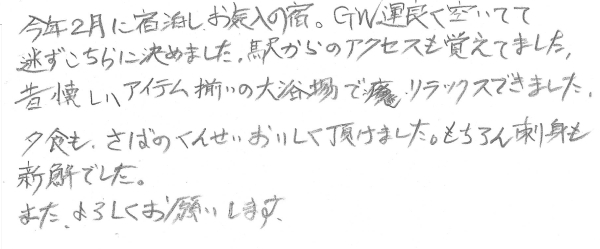 今年2月に宿泊しお気入の宿。GW運良く空いてて
迷ずこちらに決めました。駅からのアクセスも覚えてました。
昔懐しいアイテム揃いの大浴場で癒リラックスできました。
夕食も、さばのくんせいおいしく頂けました。もちろん刺身も
新鮮でした。
また、よろしくお願いします。